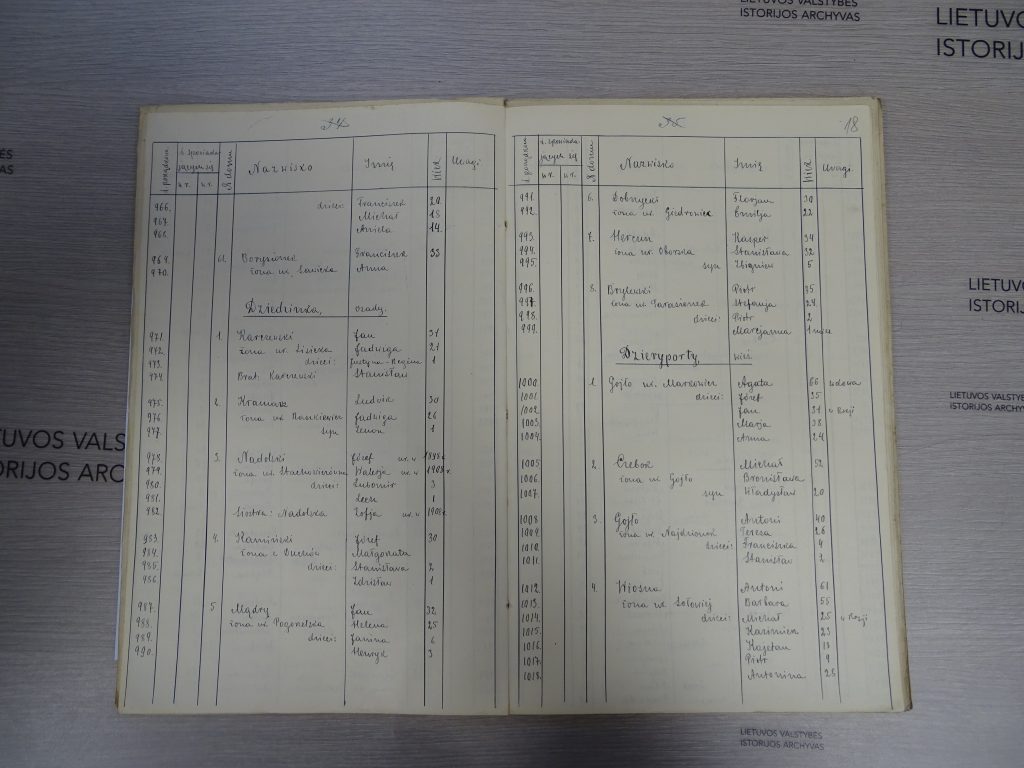 LIETUVOS VALSTYBĖS
ISTORIJOS ARCHYVAS
LIETUVO
ISTORIJ
18
№ porządkow.
z. spowiada-
jących się
№ domu
Nazwisko
Imię
Wiek
Uwagi
966. dzieci: Franciszek 20
967. Michał 18
968. Aniela 14
969. 61. Borysionek Franciszek 33
970. żona ur. Sawicka Anna
Dziedzinka, osady.
971. 1. Karczewski Jan 31
972. żona ur. Lisiecka Jadwiga 21
973. dzieci: Justyna-Regina 1
974. Brat: Karczewski Stanisław
975. 2. Kramarz Ludwik 30
976. żona ur. Jadwiga 26
977. syn Zenon 1
978. 3. Nadolski Józef ur. w
979. żona ur. Walerja ur. w
980. dzieci: Lubomir 3
981. Lech 1
982. siostra: Nadolska Zofja ur. w 1908 r.
983. 4. Kamiński Józef 30
984. żona z Duchów Małgorzata
985. dzieci: Stanisława 2
986. Zdzisław 1
987. 5 Mądry Jan 32
988. żona ur. Pogonelska Helena 25
989. dzieci: Janina 6
990. Henryk 3
№ porządkow.
z. spowiada-
jących się
№ domu
Nazwisko
Imię
Wiek
Uwagi
991. 6. Florjan 30
992. żona ur. Emilja 22
993. 7. Hercun Kasper 34
994. żona ur. Oborska Stanisława 32
995. syn Zbigniew 5
996. 8. Brylewski Piotr 35
997. żona ur. Tarasionek Stefanja 24
998. dzieci: Piotr 2
999. Marcjanna 1
Dzieryporty, wieś.
1000. 1. Gojło ur. Markowicz Agata 66 wdowa
1001. dzieci: Józef 35
1002. Jan 31 w Rosji
1003. Marja 38
1004. Anna 24
1005. 2. Czebok Michał 52
1006. żona ur. Gojło Bronisława
1007. syn Władysław 20
1008 3. Gojło Antoni 40
1009. żona ur. Najdzionek Teresa 26
1010. dzieci: Franciszka 4
1011. Stanisław 2
1012. 4. Wiosna Antoni 61
1013. żona ur. Sołowiej Barbara 55
1014. dzieci: Michał 25 w Rosji
1015. Kazimierz 23
1016. Kajetan 13
1017. Piotr 9
1018. Antonina 25
LIETUVOS VALSTYBĖS
ISTORIJOS ARCHYVAS